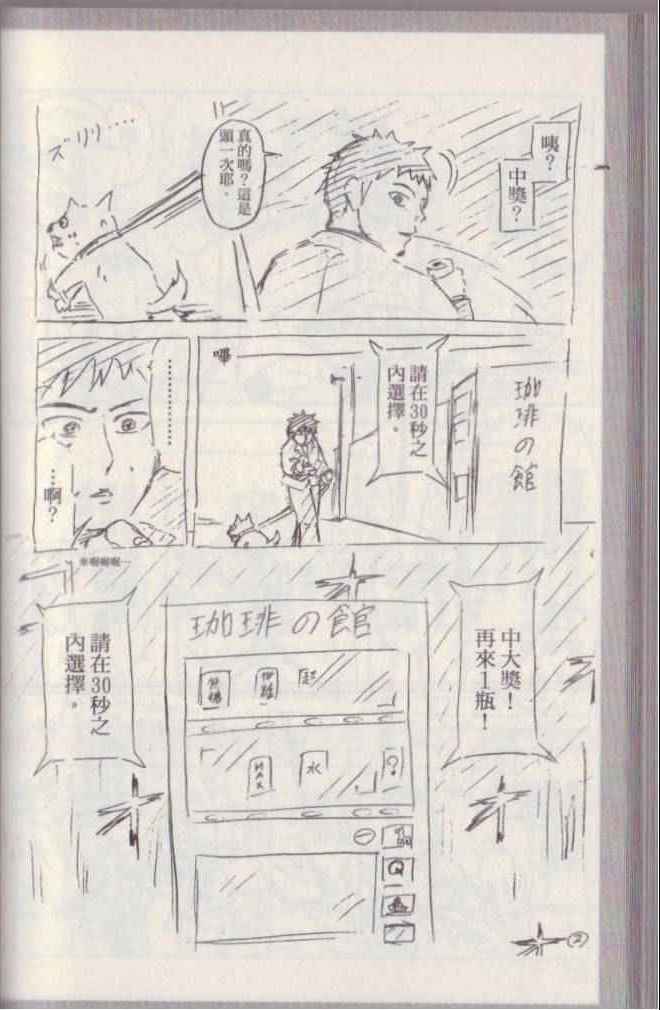 咦？
中獎？
真的嗎？這是
頭一次耶。
ズリリ……
珈琲の館
請在30秒之
內選擇。
嗶
…………
…啊？
中大獎！
再來1瓶！
珈琲の館
起
MAX
水
？
Q
請在30秒之
內選擇。
②